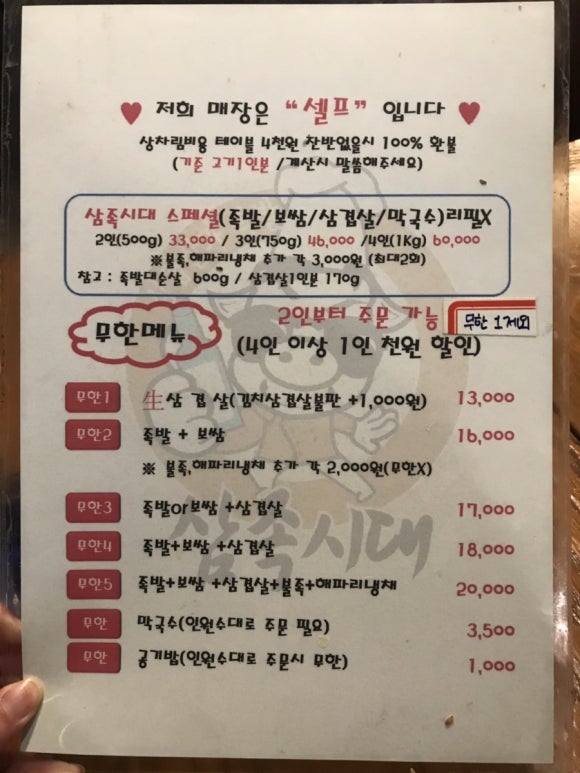 ♥ 저희 매장은 “셀프” 입니다 ♥
상차림비용 테이블 4천원 잔반없을시 100% 환불
(기준 고기1인분 /계산시 말씀해주세요)
삼족시대 스페셜(족발/보쌈/삼겹살/막국수)리필X
2인(500g) 33,000 / 3인(750g) 46,000 /4인(1Kg) 60,000
※불족,해파리냉채 추가 각 3,000원 (최대2회)
참고 : 족발대순살 600g / 삼겹살1인분 170g
2인부터 주문 가능 무한 1 제외
무한메뉴 (4인 이상 1인 천원 할인)
무한1 生삼 겹 살(김치삼겹살불판 +1,000원) 13,000
무한2 족발 + 보쌈 16,000
※ 불족,해파리냉채 추가 각 2,000원(무한X)
무한3 족발or보쌈 +삼겹살 17,000
무한4 족발+보쌈 +삼겹살 18,000
무한5 족발+보쌈 +삼겹살+불족+해파리냉채 20,000
무한 막국수(인원수대로 주문 필요) 3,500
무한 공기밥(인원수대로 주문시 무한) 1,000
삼족시대